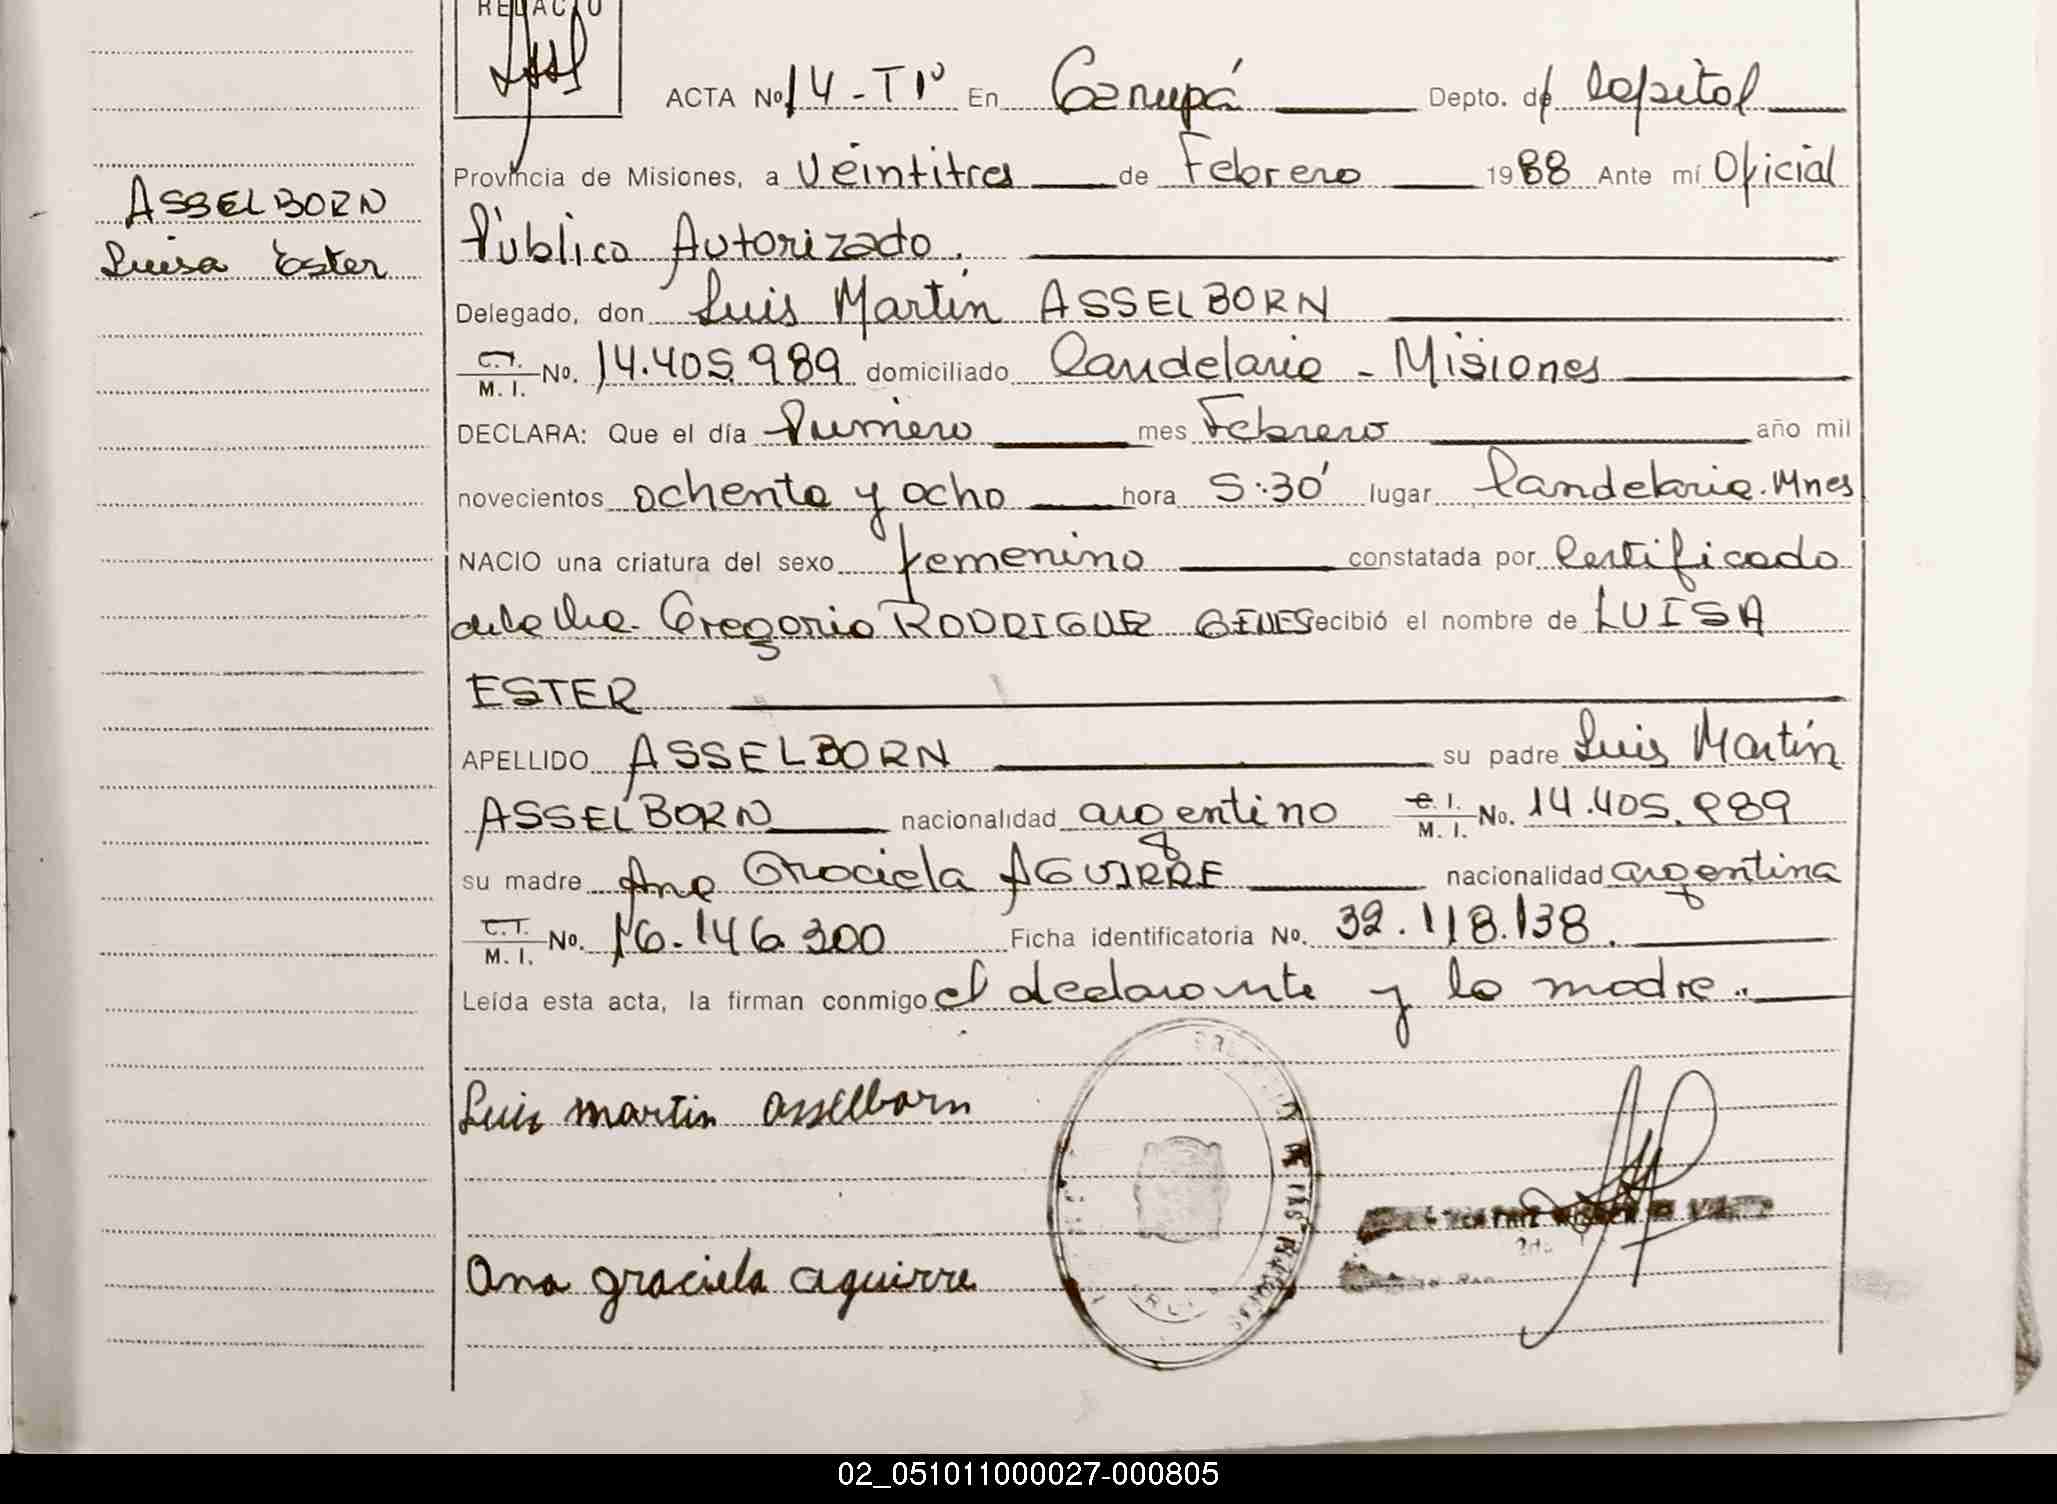 RELACIO
ACTA No 14-Tº1º En Garupá Depto. de Capital
Provincia de Misiones, a Veintitres de Febrero 1988 Ante mí Oficial
ASSELBORN
Público Autorizado.
Luisa Ester
Delegado, don Luis Martín ASSELBORN
C.I. M. I. No. 14.405.989 domiciliado Candelaria - Misiones
DECLARA: Que el día Primero mes Febrero año mil
novecientos ochenta y ocho hora 5:30' lugar Candelaria. Mnes
NACIO una criatura del sexo femenino constatada por Certificado
de la Gregoria RODRIGUEZ GINES recibió el nombre de LUISA
ESTER
APELLIDO ASSELBORN su padre Luis Martín
ASSELBORN nacionalidad argentino C.I. M. I. No. 14.405.989
su madre Ana Graciela AGUIRRE nacionalidad argentina
C.I. M. I. No. 16.146.300 Ficha identificatoria No. 32.118.138.
Leída esta acta, la firman conmigo el declarante y la madre..
Luis martin asselborn
Ana graciela aguirre
02_051011000027-000805